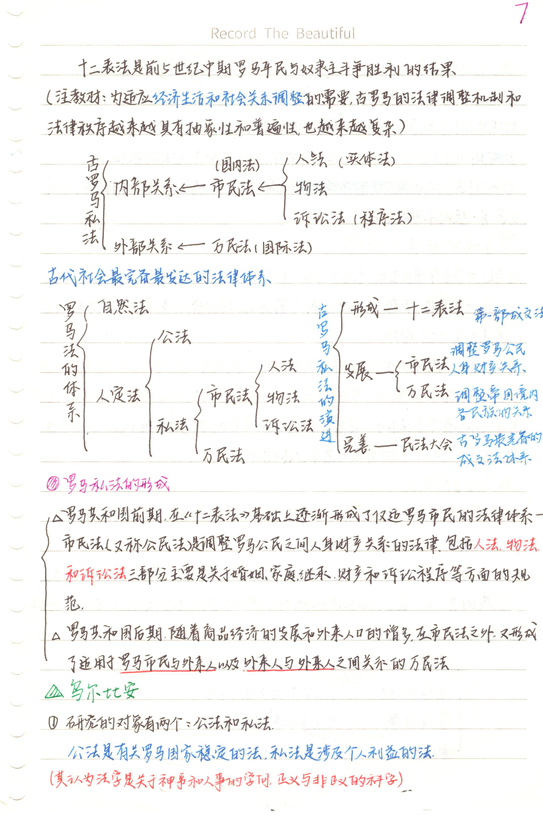 7
Record The Beautiful
十二表法是前5世纪中期罗马平民与奴隶主斗争胜利的结果
(注教材:为适应经济生活和社会关系调整的需要,古罗马的法律调整机制和
法律秩序越来越具有抽象性和普遍性,也越来越复杂)
古罗马私法
(国内法)
人法 (实体法)
内部关系 ← 市民法 ←
物法
诉讼法 (程序法)
外部关系 ← 万民法(国际法)
古代社会最完备最发达的法律体系
罗马法的体系
自然法
人定法
公法
私法
市民法
万民法
人法
物法
诉讼法
古罗马私法的演进
形成 — 十二表法 第一部成文法
发展 —
市民法 调整罗马公民
人身财产关系
万民法 调整帝国境内
各民族的关系
完善 — 民法大会 古罗马最完备的
成文法体系
罗马私法的形成
△罗马共和国前期,在《十二表法》基础上逐渐形成了仅适罗马市民的法律体系—
市民法(又称公民法)是调整罗马公民之间人身财产关系的法律,包括人法,物法,
和诉讼法三部分主要是关于婚姻、家庭,继承,财产和诉讼程序等方面的规
范.
△ 罗马共和国后期,随着商品经济的发展和外来人口的增多,在市民法之外,又形成
了适用于罗马市民与外来人以及外来人与外来人之间关系的万民法
乌尔比安
① 研究的对象有两个:公法和私法.
公法是有关罗马国家稳定的法,私法是涉及个人利益的法.
(其认为法学是关于神事和人事的学问,正义与非正义的科学)